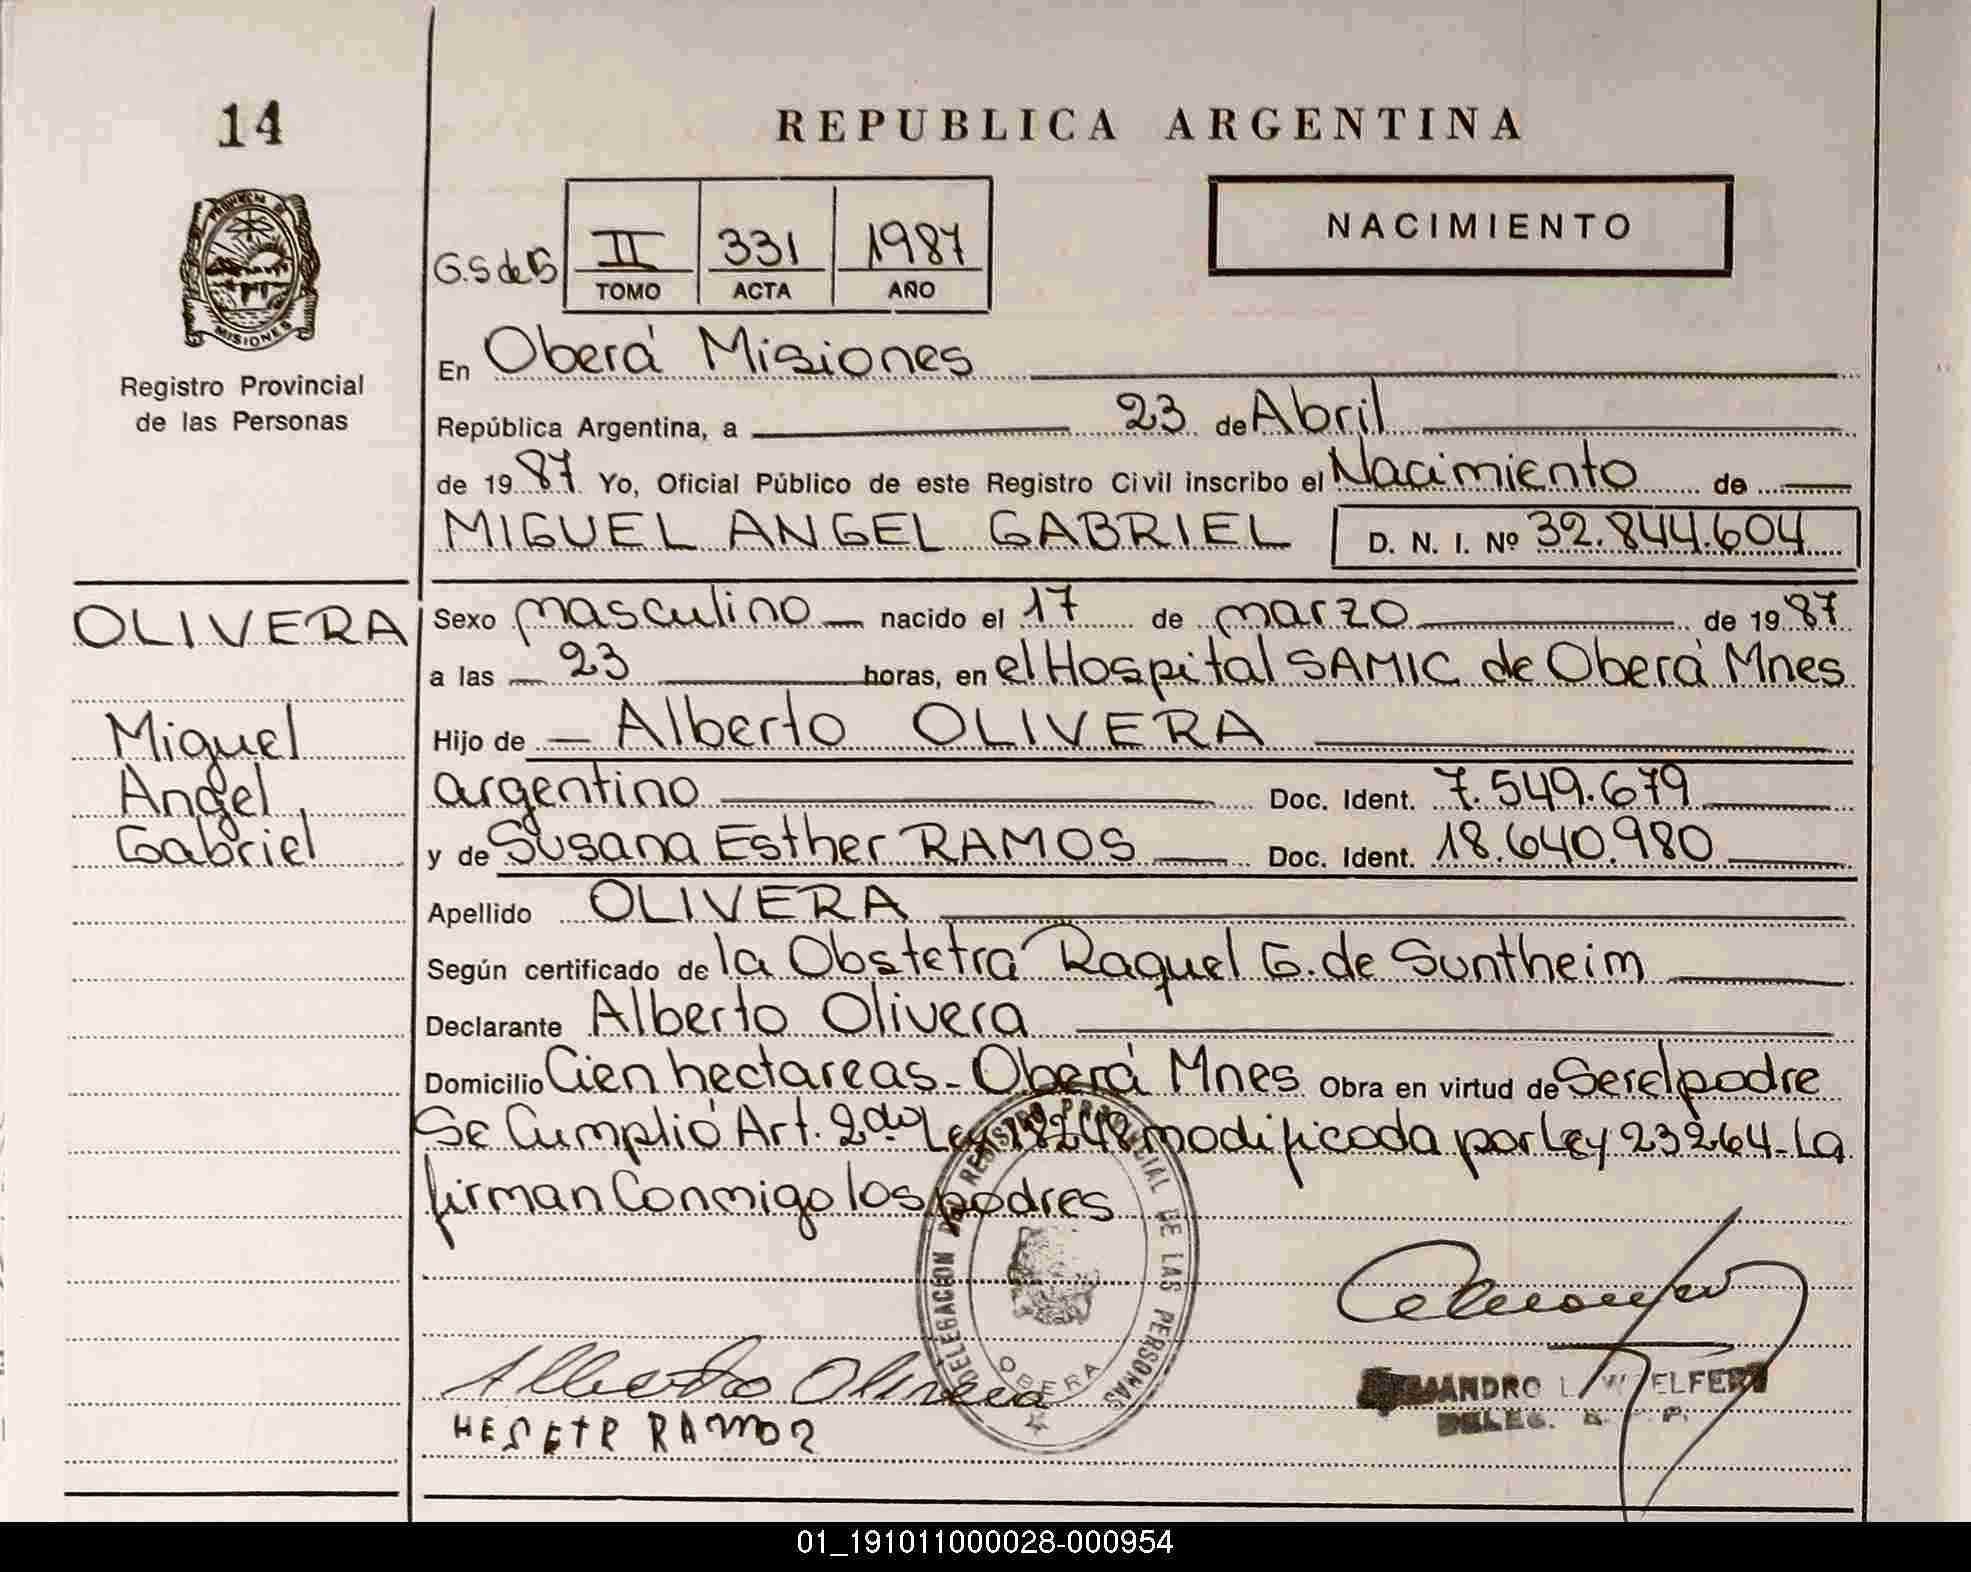 14
REPUBLICA ARGENTINA
PROVINCIA DE
MISIONES
Registro Provincial
de las Personas
NACIMIENTO
G.S de
II 331 1987
TOMO ACTA AÑO
En Oberá Misiones
República Argentina, a 23 de Abril
de 1987 Yo, Oficial Público de este Registro Civil inscribo el Nacimiento de
MIGUEL ANGEL GABRIEL D. N. I. Nº 32.844.604
OLIVERA
Miguel
Angel
Gabriel
Sexo masculino nacido el 17 de marzo de 1987
a las 23 horas, en el Hospital SAMIC de Oberá Mnes
Hijo de Alberto OLIVERA
argentino Doc. Ident. 7.549.679
y de Susana Esther RAMOS Doc. Ident. 18.640.980
Apellido OLIVERA
Según certificado de la Obstetra Raquel G. de Suntheim
Declarante Alberto Olivera
Domicilio Cien hectareas - Oberá Mnes Obra en virtud de Ser el padre
Se Cumplió Art. 2do Ley 18248 modificada por Ley 23264 - La
firman Conmigo los padres
DELEGACION DEL REGISTRO PROVINCIAL DE LAS PERSONAS
OBERA
Alberto Olivera
HESETR RAMOS
DELEG.
01_191011000028-000954